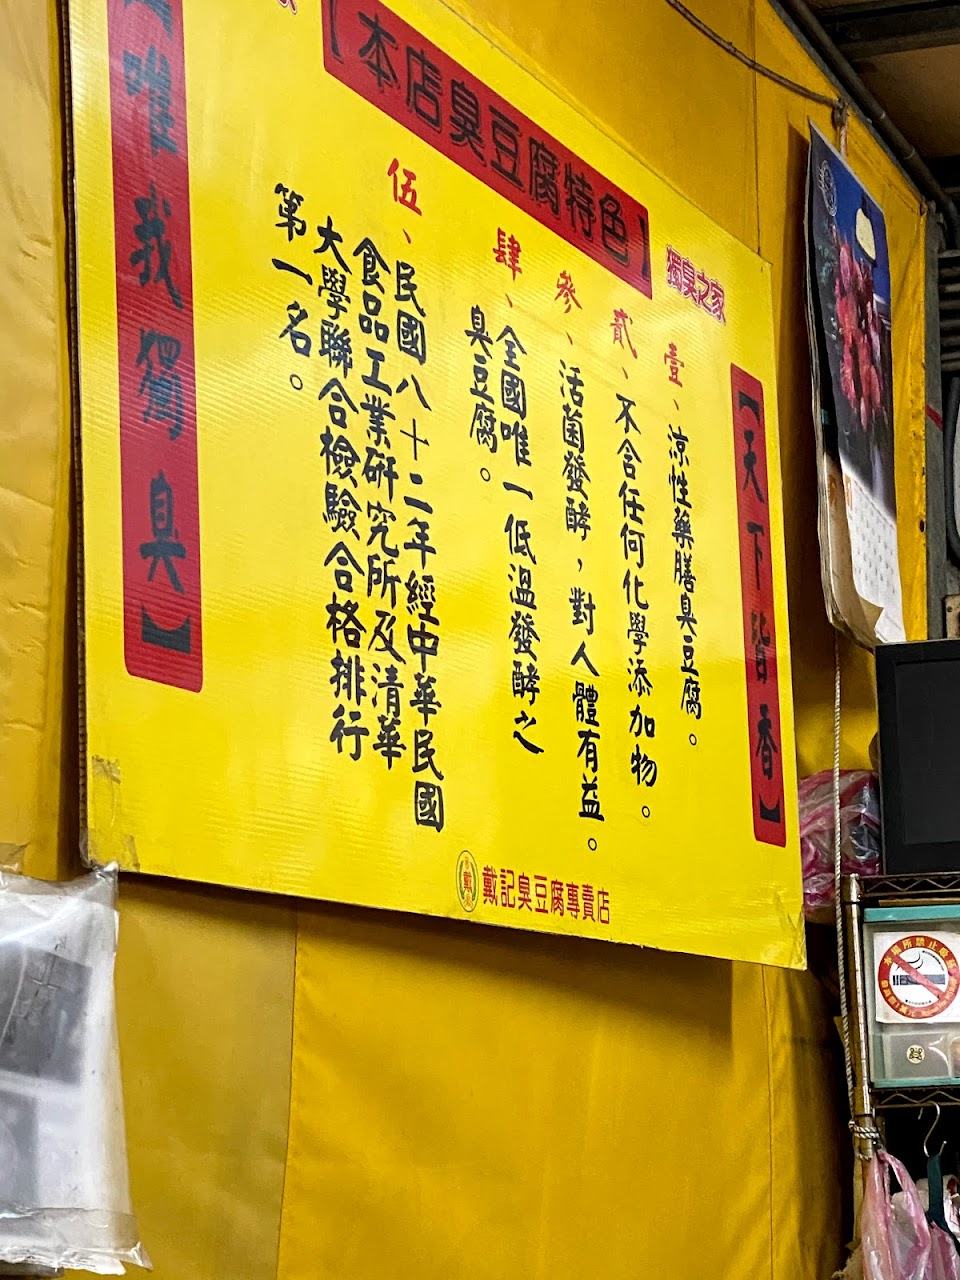 【本店臭豆腐特色】
獨臭之家
【天下皆香】
壹、涼性藥膳臭豆腐。
貳、不含任何化學添加物。
參、活菌發酵，對人體有益。
肆、全國唯一低溫發酵之
臭豆腐。
伍、民國八十二年經中華民國
食品工業研究所及清華
大學聯合檢驗合格排行
第一名。
【唯我獨臭】
戴記臭豆腐專賣店
本場所禁止吸菸